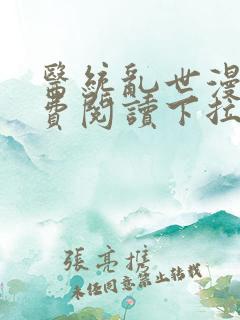 醫統亂世漫
費閱讀下拉
張亮携
未经同意禁止转载